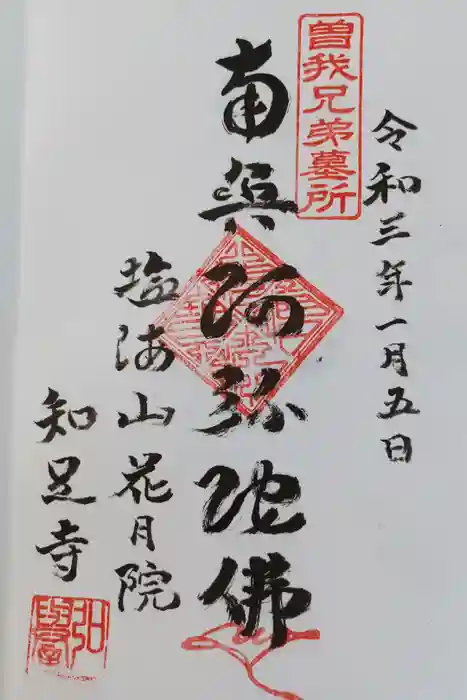 令和三年一月五日
曽我兄弟墓所
南無阿弥陀佛
塩海山花月院
知足寺